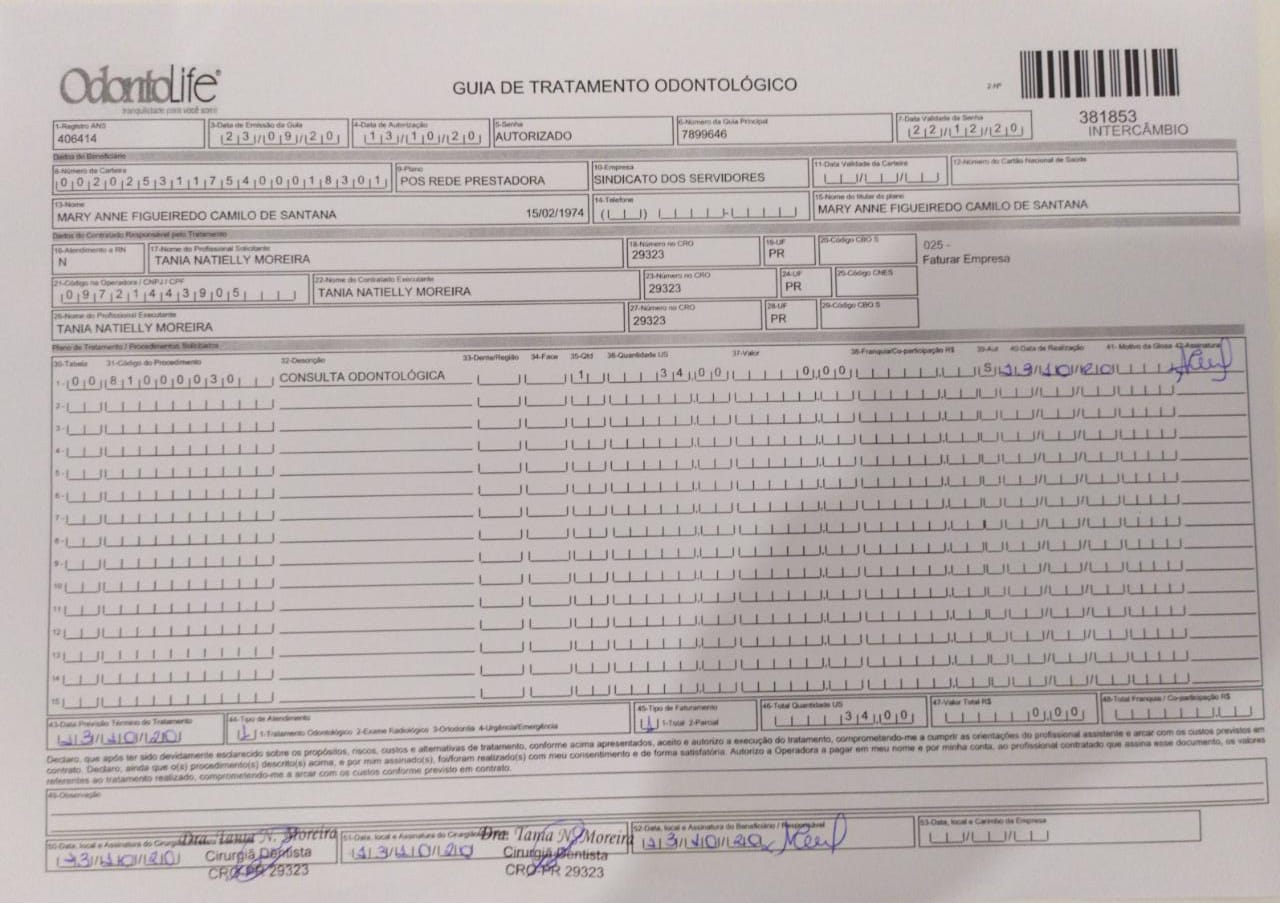 OdontoLife®
tranquilidade para você sorrir
GUIA DE TRATAMENTO ODONTOLÓGICO
2-Nº
381853
INTERCÂMBIO
1-Registro ANS
406414
3-Data de Emissão da Guia
23/09/20
4-Data de Autorização
13/10/20
5-Senha
AUTORIZADO
6-Número da Guia Principal
7899646
7-Data Validade da Senha
22/12/20
Dados do Beneficiário
8-Número da Carteira
00202531175400018301
9-Plano
POS REDE PRESTADORA
10-Empresa
SINDICATO DOS SERVIDORES
11-Data Validade da Carteira
12-Número do Cartão Nacional de Saúde
13-Nome
MARY ANNE FIGUEIREDO CAMILO DE SANTANA 15/02/1974
14-Telefone
15-Nome do titular do plano
MARY ANNE FIGUEIREDO CAMILO DE SANTANA
Dados do Contratado Responsável pelo Tratamento
16-Atendimento a RN
N
17-Nome do Profissional Solicitante
TANIA NATIELLY MOREIRA
18-Número no CRO
29323
19-UF
PR
20-Código CBO S
025 -
Faturar Empresa
21-Código na Operadora / CNPJ / CPF
09721443905
22-Nome do Contratado Executante
TANIA NATIELLY MOREIRA
23-Número no CRO
29323
24-UF
PR
25-Código CNES
26-Nome do Profissional Executante
TANIA NATIELLY MOREIRA
27-Número no CRO
29323
28-UF
PR
29-Código CBO S
Plano de Tratamento / Procedimentos Solicitados
30-Tabela 31-Código do Procedimento 32-Descrição 33-Dente/Região 34-Face 35-Qtd 36-Quantidade US 37-Valor 38-Franquia/Co-participação R$ 39-Aut 40-Data de Realização 41- Motivo da Glosa 42-Assinatura
1- 00 81000030 CONSULTA ODONTOLÓGICA 1 34,00 0,00 S 13/10/20
2-
3-
4-
5-
6-
7-
8-
9-
10
11
12
13
14
15
43-Data Previsão Término do Tratamento
13/10/20
44-Tipo de Atendimento
1 1-Tratamento Odontológico 2-Exame Radiológico 3-Ortodontia 4-Urgência/Emergência
45-Tipo de Faturamento
1 1-Total 2-Parcial
46-Total Quantidade US
34,00
47-Valor Total R$
0,00
48-Total Franquia / Co-participação R$
Declaro, que após ter sido devidamente esclarecido sobre os propósitos, riscos, custos e alternativas de tratamento, conforme acima apresentados, aceito e autorizo a execução do tratamento, comprometendo-me a cumprir as orientações do profissional assistente e arcar com os custos previstos em
contrato. Declaro, ainda que o(s) procedimento(s) descrito(s) acima, e por mim assinado(s), foi/foram realizado(s) com meu consentimento e de forma satisfatória. Autorizo a Operadora a pagar em meu nome e por minha conta, ao profissional contratado que assina esse documento, os valores
referentes ao tratamento realizado, comprometendo-me a arcar com os custos conforme previsto em contrato.
49-Observação
50-Data, local e Assinatura do Cirurgião
13/10/20
Dra. Tania N. Moreira
Cirurgiã Dentista
CRO-PR 29323
51-Data, local e Assinatura do Cirurgião
13/10/20
Dra. Tania N. Moreira
Cirurgiã Dentista
CRO-PR 29323
52-Data, local e Assinatura do Beneficiário / Responsável
13/10/20
53-Data, local e Carimbo da Empresa